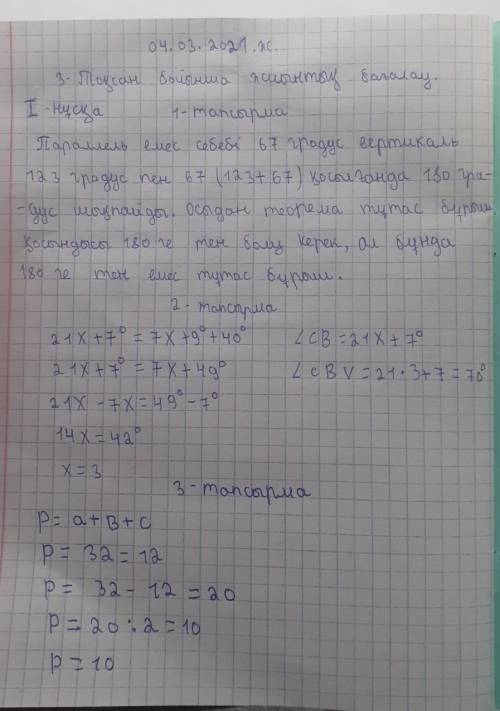 04.03.2021.ж.
3-Тоқсан бойынша жиынтық бағалау.
I-нұсқа 1-тапсырма
Параллель емес себебі 67 градус вертикаль
123 градус пен 67 (123+67) қосылғанда 180 гра-
-дус шықпайды. Осыдан теорема тұтас бұрыш
қосындысы 180 ге тең болу керек, ал бұнда
180 ге тең емес тұтас бұрыш.
2-тапсырма
21x+7°=7x+9°+40° ∠CB=21x+7°
21x+7°=7x+49° ∠CBV=21·3+7=70°
21x-7x=49°-7°
14x=42°
x=3
3-тапсырма
P=a+B+c
P=32=12
P=32-12=20
P=20:2=10
P=10